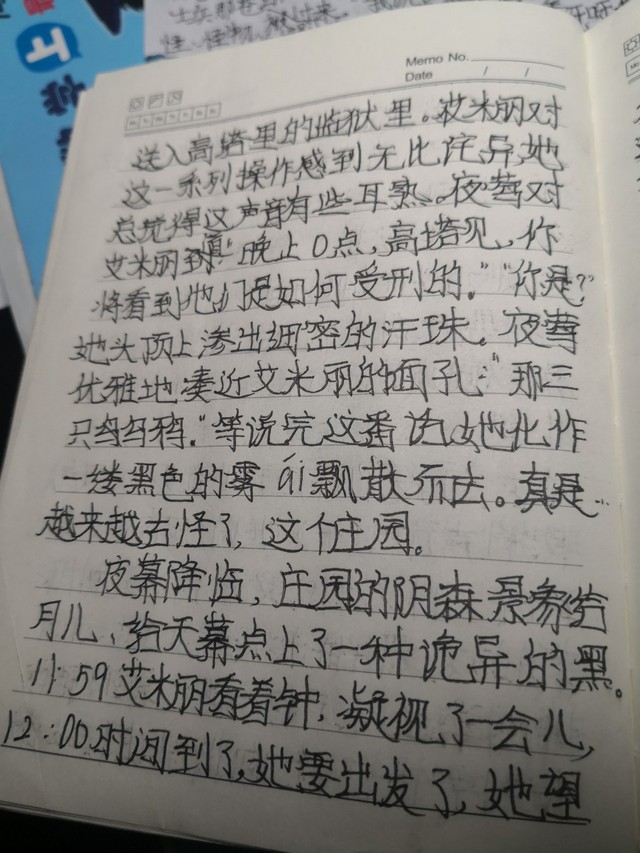 Memo No.
Date / /
送入高塔里的监狱里。艾米丽对
这一系列操作感到无比诧异她
总觉得这声音有些耳熟。夜莺对
艾米丽到道:"晚上0点,高塔见,你
将看到他们是如何受刑的。""你是?"
她头顶上渗出细密的汗珠。夜莺
优雅地凑近艾米丽的面孔:"那三
只乌鸦。"等说完这番话,她化作
一缕黑色的雾ái飘散而去。真是…
越来越古怪了,这个庄园。
夜幕降临,庄园的阴森景象给
月儿、给天幕点上了一种诡异的黑。
11:59艾米丽看着钟,凝视了一会儿,
12:00时间到了,她要出发了,她望